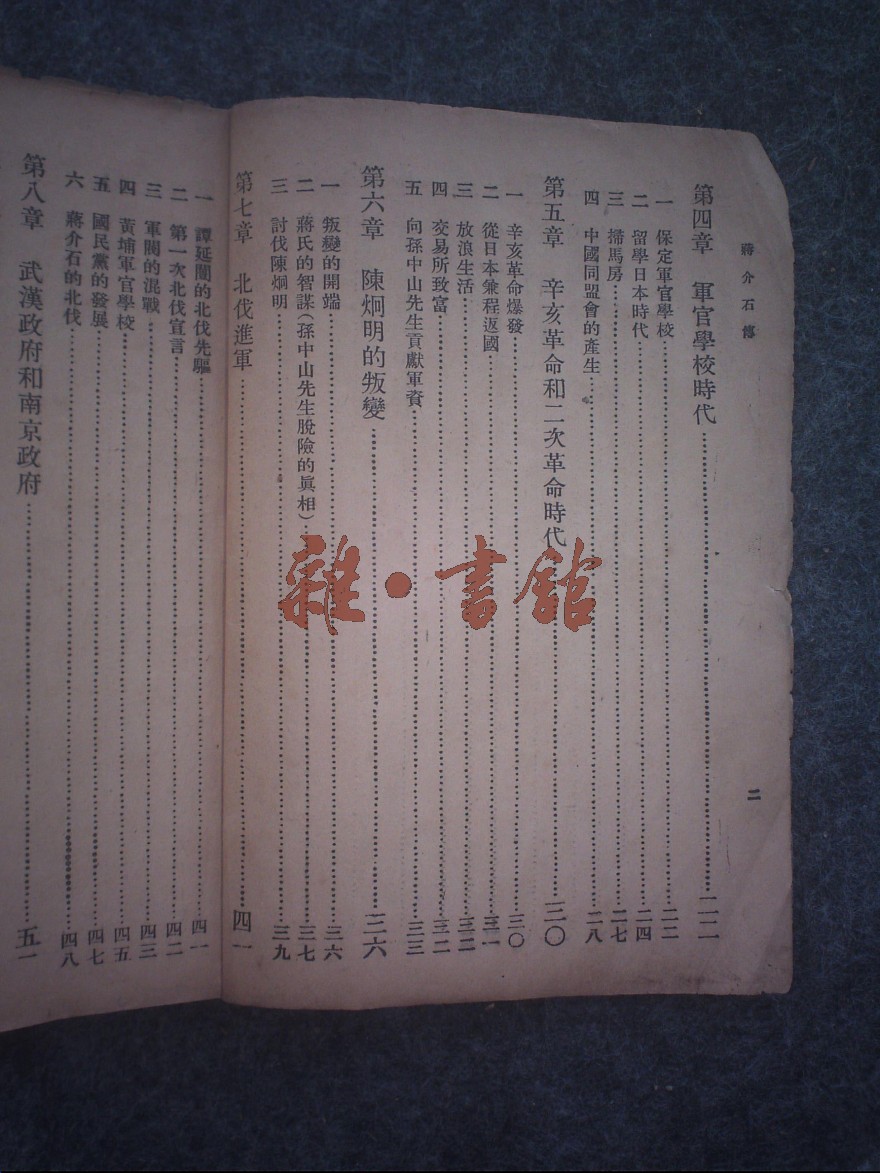 蔣介石傳
二
第四章 軍官學校時代…二二
一 保定軍官學校…二二
二 留學日本時代…二四
三 掃馬房…二七
四 中國同盟會的產生…二八
第五章 辛亥革命和二次革命時代…三〇
一 辛亥革命爆發…三〇
二 從日本兼程返國…三一
三 放浪生活…三二
四 交易所致富…三二
五 向孫中山先生貢獻軍資…三三
第六章 陳炯明的叛變…三六
一 叛變的開端…三六
二 蔣氏的智謀(孫中山先生脫險的眞相)…三七
三 討伐陳炯明…三九
第七章 北伐進軍…四一
一 譚延闓的北伐先驅…四一
二 第一次北伐宣言…四二
三 軍閥的混戰…四三
四 黃埔軍官學校…四五
五 國民黨的發展…四七
六 蔣介石的北伐…四八
第八章 武漢政府和南京政府…五一
雜·書館